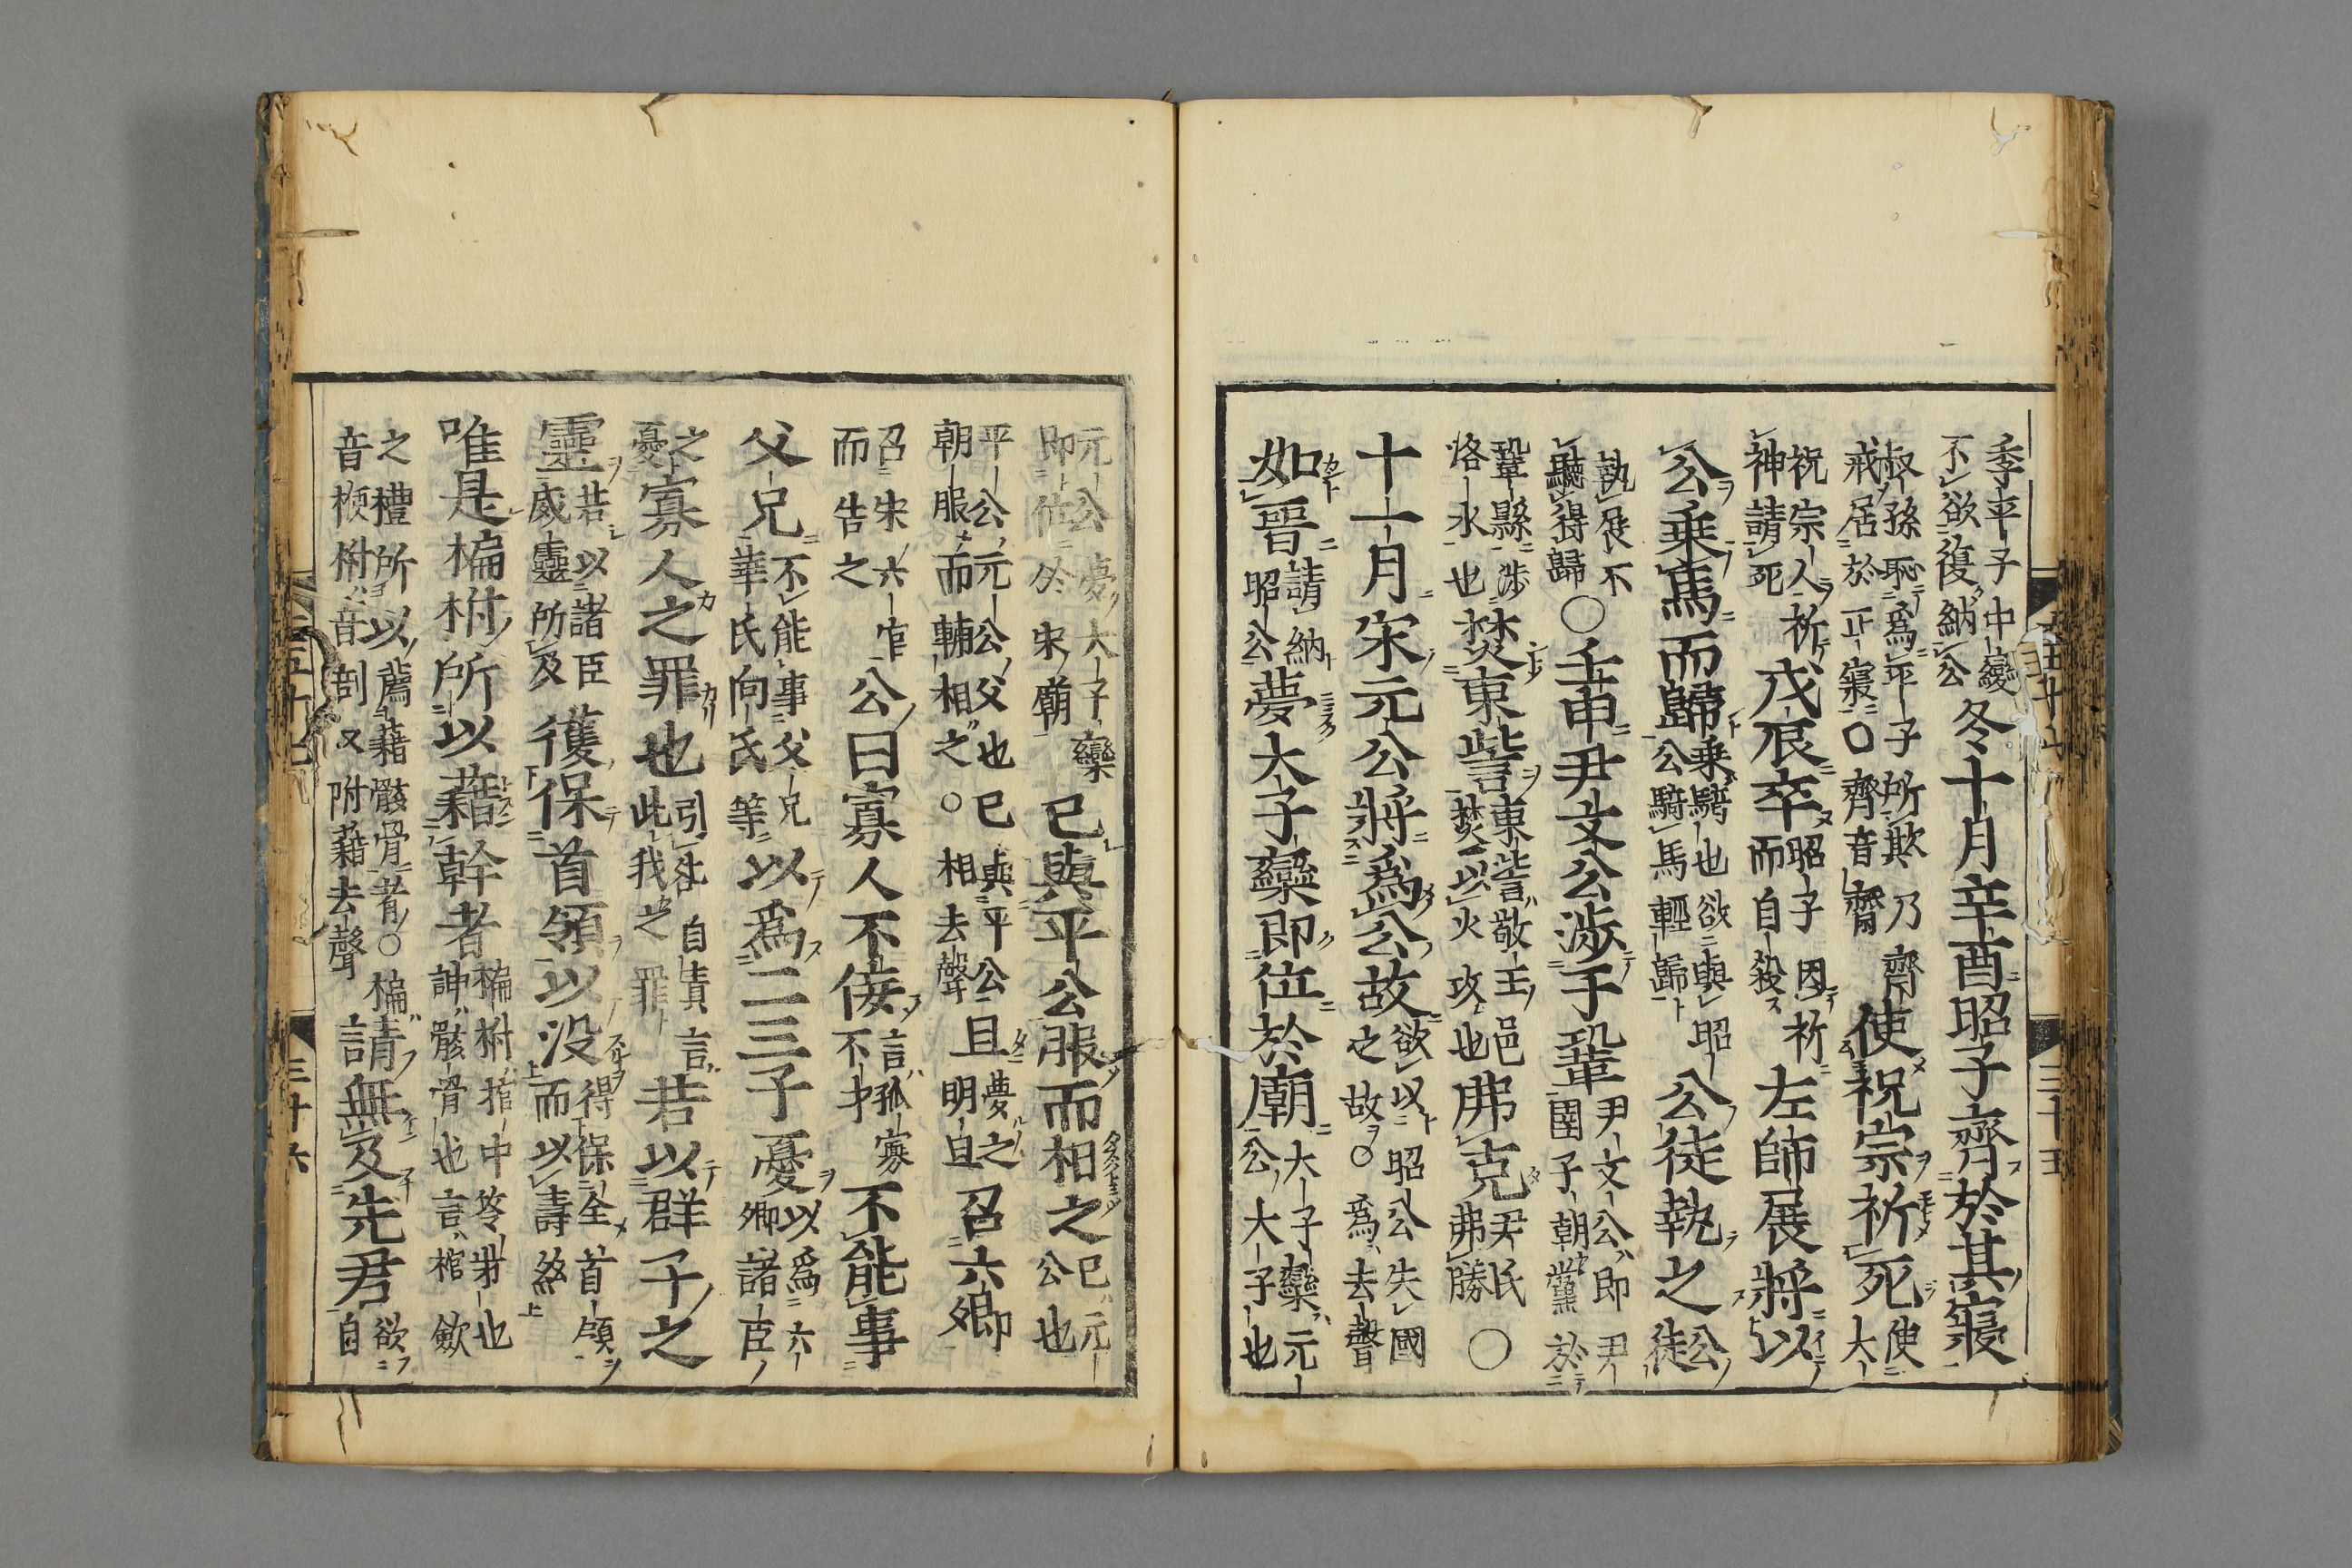 季平子中變不欲復納公冬十月辛酉昭子齊於其寢
叔孫恥爲平子所欺乃齊戒居於正寢〇齊音齋使祝宗祈死使大
祝宗人祈神請死戊辰卒昭子因祈而自殺左師展將以
公乗馬而歸乗騎也欲與昭公騎馬輕歸公徒執之公徒
執展不聽得歸〇壬申尹文公渉于鞏尹文公即尹圉子朝黨於
鞏縣渉洛水也焚東訾東訾敬王邑焚以火攻也弗克尹氏弗勝〇
十一月宋元公將爲公故欲以昭公失國之故〇爲去聲
如晉請納昭公夢大子欒即位於廟大子欒元公大子也
元公夢大子欒即位於宋廟已與平公服而相之已元公也
平公元公父也已與平公朝服而輔相之〇相去聲旦夢之明旦召六卿
召宋六官而告之公曰寡人不佞言孤寡不才不能事
父兄不能事父兄華氏向氏等以爲二三子憂以爲六卿諸臣
之憂寡人之罪也此引咎自責言我之罪若以群子之
靈若以諸臣威靈所及獲保首領以没得保全首領而以壽終
唯是楄柎所以藉幹者楄柎棺中笭牀也幹骸骨也言棺歛
之禮所以薦藉骸骨者〇楄音楩柎音剖又附藉去聲請無及先君欲自
三十五
三十六